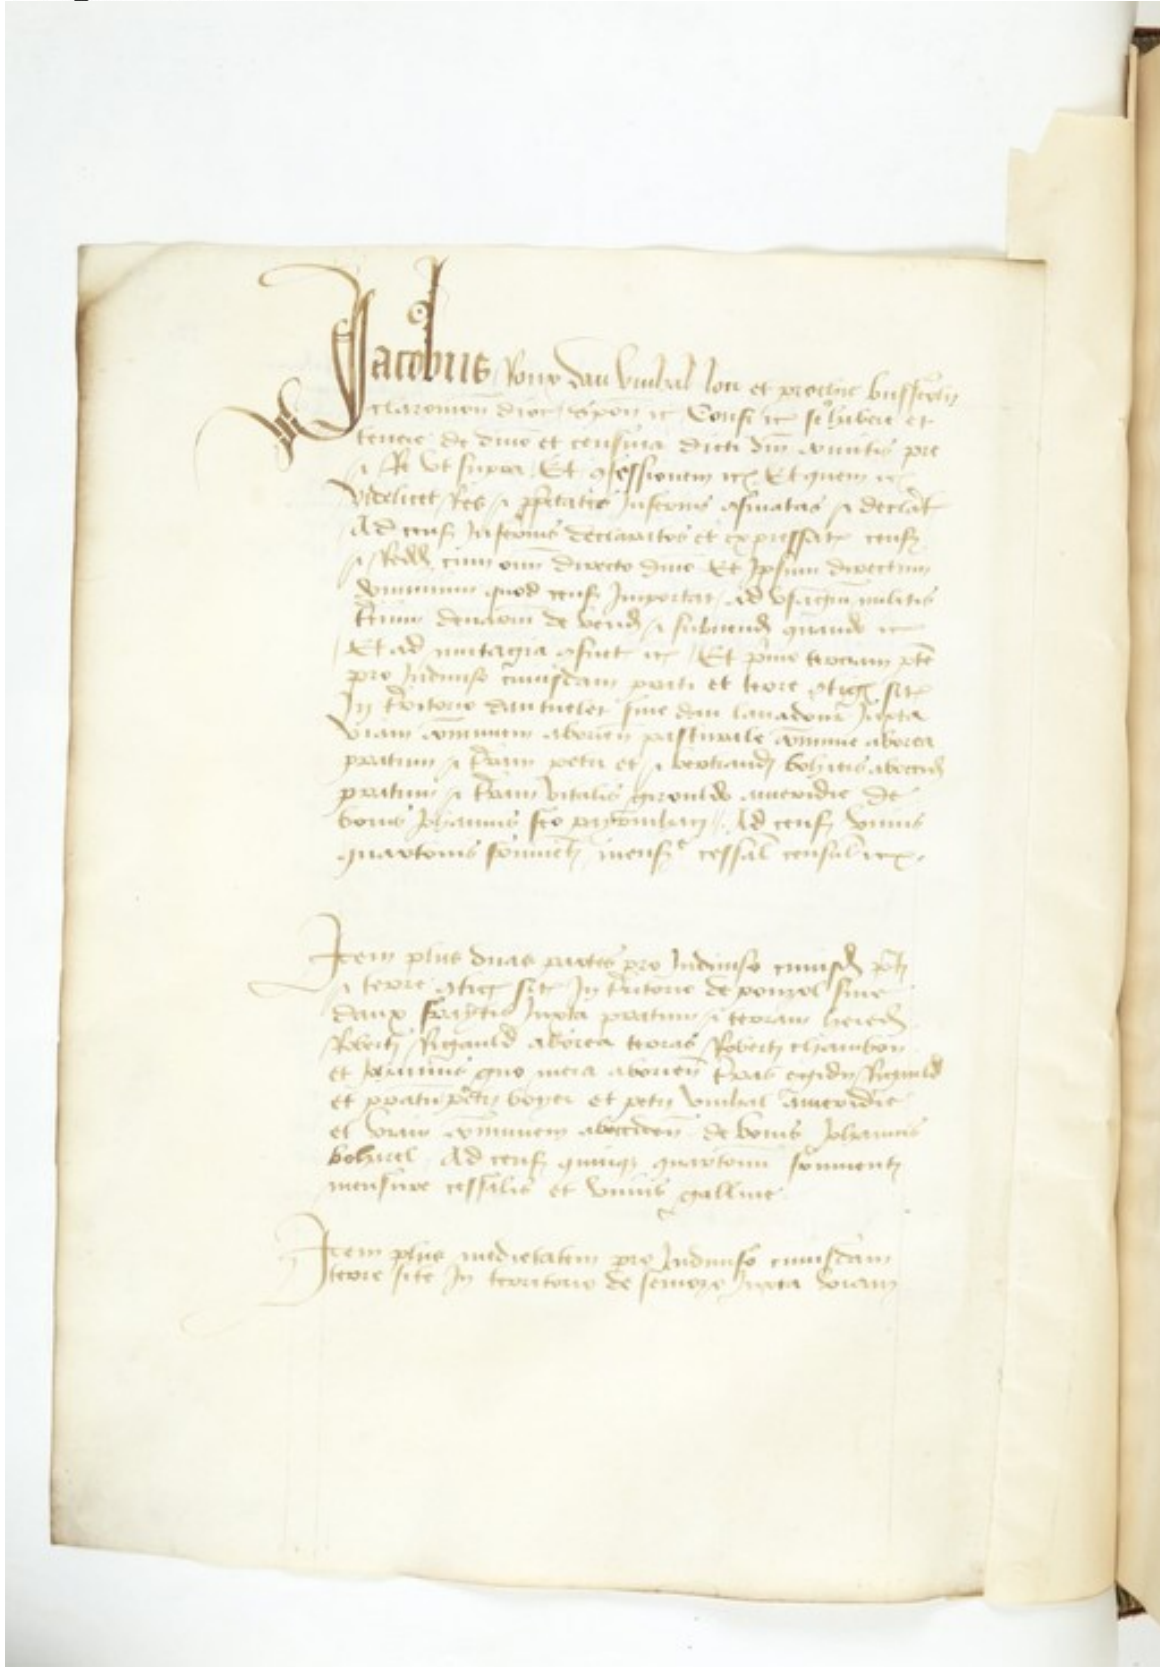 Jacobus Roux dau Vinhal loci et
claromon dioc spon etc Confi etc se habere et
tenere de dnio et censiva dicti dni comitis pre
Et ut supra Et confessionem etc Et quem etc
Videlicet Res et pprietates Inferius confinatas et declarat
Ad cens Inferius declaratos et expressat cens
et Redd cum omi directo dnio Et Ipsum directum
dominium quod cens Importat Ad usagium militis
tertium denarium de vend et subvend quando etc
Et ad mutagia consuet etc Et primo terciam pte
pro Indiviso cuiusdam prati et terre contig sit
In territorio dau sive dau Juxta
Viam comunem aborien pasturale comune aborea
pratum et terram petri et bertrandi aboccid
pratum et terram Vitalis amеridie de
bonis Johannis Ad cens Unius
quartonis frumenti mens cessal censual etc

Item plus duas partes pro Indiviso cuiusd prati
et terre contig sit In territorio de sive
daux Juxta pratum et terram hered
Roberti Rigauld aborea terras Roberti chambon
et Johannis que mera aborien terras egidii Rigauld
et pratum petri boyer et petri Vinhal ameridie
et Viam comunem abocciden de bonis Johannis
Ad cens quinque quartonum frumenti
mensure cessalis et Unius galline

Item plus medietatem pro Indiviso cuiusdam
terre site In territorio de Juxta Viam